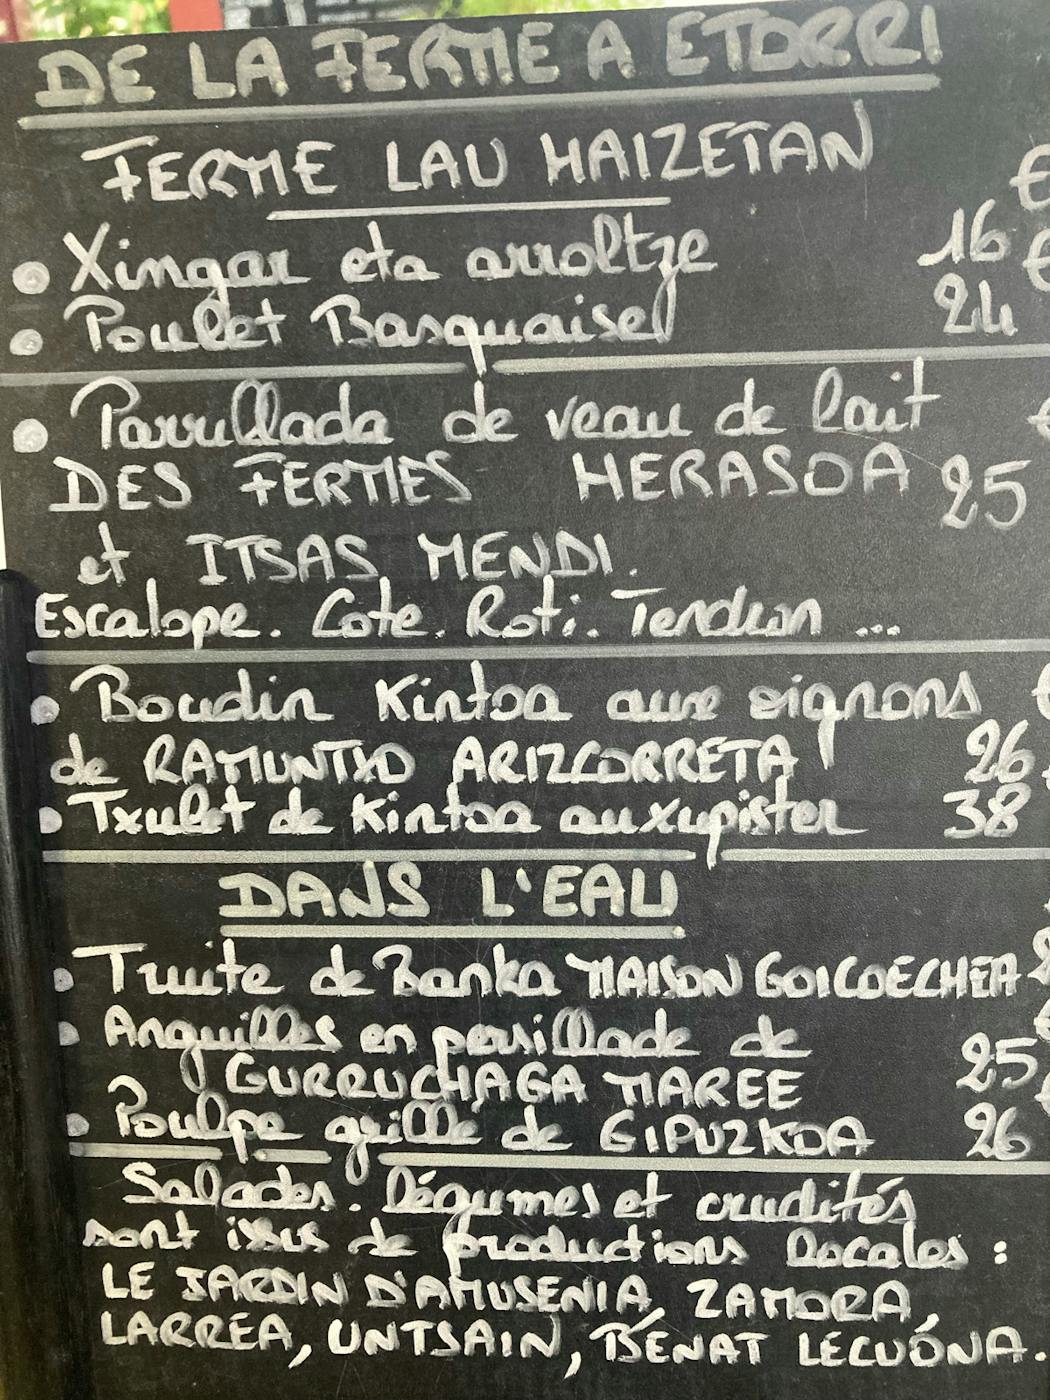 DE LA FERME A ETORRI
FERME LAU HAIZETAN €
• Xingar eta arroltze 16 €
• Poulet Basquaise 24
• Parrillada de veau de lait €
DES FERMES HERASOA 25
et ITSAS MENDI.
Escalope. Cote. Roti. Tendron ...
• Boudin Kintoa aux oignons €
de RAMUNTXO ARIZCORRETA 26
• Txulet de Kintoa auxupister 38
DANS L'EAU
• Truite de Banka MAISON GOICOECHEA
• Anguilles en persillade de 25
GURRUCHAGA MAREE €
• Poulpe grillé de GIPUZKOA 26
Salades. légumes et crudités
sont issus de productions locales :
LE JARDIN D'AMUSENIA, ZAMORA,
LARREA, UNTSAIN, BENAT LECUONA.